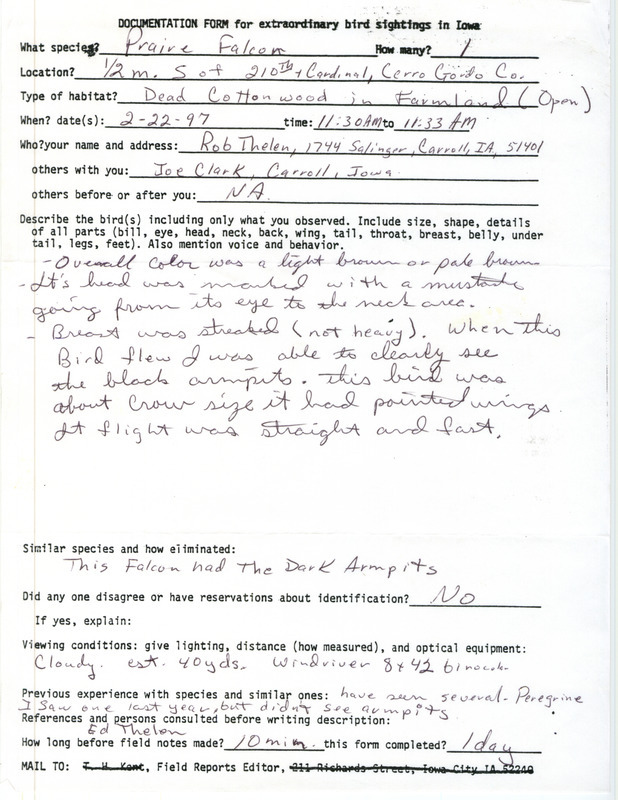 DOCUMENTATION FORM for extraordinary bird sightings in Iowa
What species? Praire Falcon How many? 1
Location? 1/2 m. S of 210TH + Cardinal, Cerro Gordo Co.
Type of habitat? Dead Cottonwood in Farmland (Open)
When? date(s): 2-22-97 time: 11:30 AM to 11:33 AM
Who?your name and address: Rob Thelen, 1744 Salinger, Carroll, IA, 51401
others with you: Joe Clark, Carroll, Iowa
others before or after you: NA
Describe the bird(s) including only what you observed. Include size, shape, details
of all parts (bill, eye, head, neck, back, wing, tail, throat, breast, belly, under
tail, legs, feet). Also mention voice and behavior.
- Overall color was a light brown or pale brown
- It's head was marked with a mustache
going from its eye to the neck area.
- Breast was streaked (not heavy). When this
Bird flew I was able to clearly see
the black armpits. this bird was
about Crow size it had pointed wings.
It flight was straight and fast.
Similar species and how eliminated:
This Falcon had The Dark Armpits
Did any one disagree or have reservations about identification? No
If yes, explain:
Viewing conditions: give lighting, distance (how measured), and optical equipment:
Cloudy. est. 40yds. Windriver 8x42 binocular
Previous experience with species and similar ones: have seen several - Peregrine
I saw one last year, but didn't see armpits
References and persons consulted before writing description:
Ed Thelen
How long before field notes made? 10 min. this form completed? 1 day
MAIL TO: T. H. Kent, Field Reports Editor, 211 Richards Street, Iowa City IA 52240